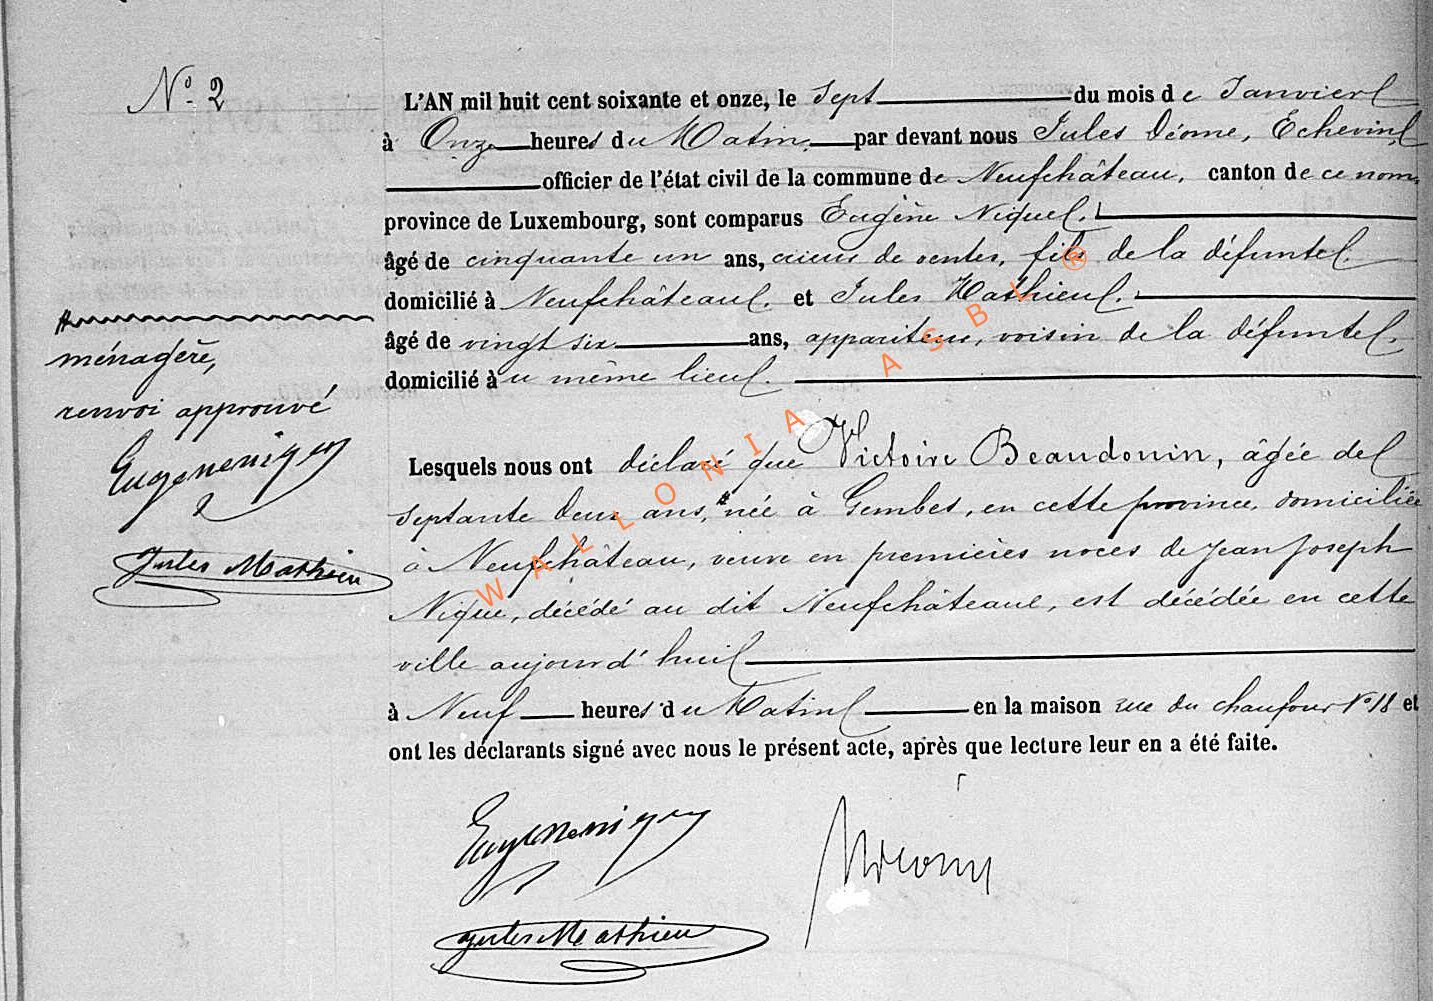 N° 2
L'AN mil huit cent soixante et onze, le Sept du mois de Janvier
à Onze heures du Matin, par devant nous Jules Déome, Echevin,
officier de l'état civil de la commune de Neufchâteau, canton de ce nom,
province de Luxembourg, sont comparus Eugène Nique,
âgé de cinquante un ans, crieur de ventes, fils de la défunte,
domicilié à Neufchâteau, et Jules Mathieu,
âgé de vingt six ans, appariteur, voisin de la défunte,
domicilié au même lieu.
ménagère,
renvoi approuvé
Eugene nique
Jules Mathieu
Lesquels nous ont déclaré que Victoire Beaudouin, âgée de
septante deux ans, née à Gembes, en cette province, domiciliée
à Neufchâteau, veuve en premières noces de Jean Joseph
Nique, décédé au dit Neufchâteau, est décédée en cette
ville aujourd'hui
à Neuf heures du Matin en la maison rue du chaufour N° 18 et
ont les déclarants signé avec nous le présent acte, après que lecture leur en a été faite.
Eugene nique
Jules Mathieu
WALLONIA ASBL ®